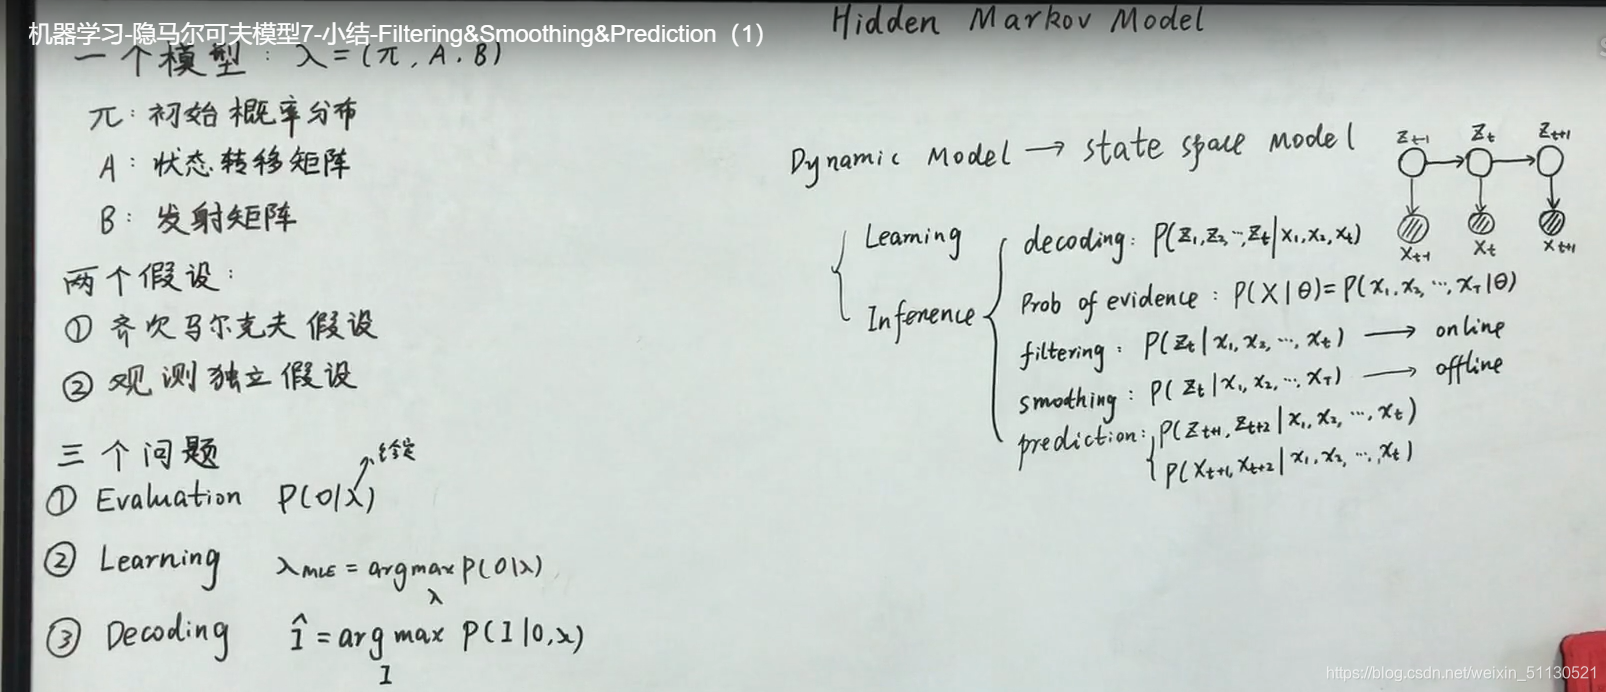 机器学习-隐马尔可夫模型7-小结-Filtering&Smoothing&Prediction（1）
Hidden Markov Model
一个模型: λ=(π, A. B)
π: 初始概率分布
A: 状态转移矩阵
B: 发射矩阵
两个假设:
① 齐次马尔克夫假设
② 观测独立假设
三个问题
给定
① Evaluation P(O|λ)
② Learning λMLE = argmax P(O|λ)
λ
③ Decoding Î = arg max P(I|O,λ)
I
Dynamic Model → state space model
Zt-1 Zt Zt+1
Xt-1 Xt Xt+1
Learning
Inference
decoding: P(Z1,Z2,…,Zt|x1,x2,xt)
Prob of evidence: P(X|θ)=P(x1,x2,…,xT|θ)
filtering: P(Zt|x1,x2,…,xt) → online
smothing: P(Zt|x1,x2,…,xT) → offline
prediction: P(Zt+1,Zt+2|x1,x2,…,xt)
P(Xt+1,Xt+2|x1,x2,…,xt)
https://blog.csdn.net/weixin_51130521